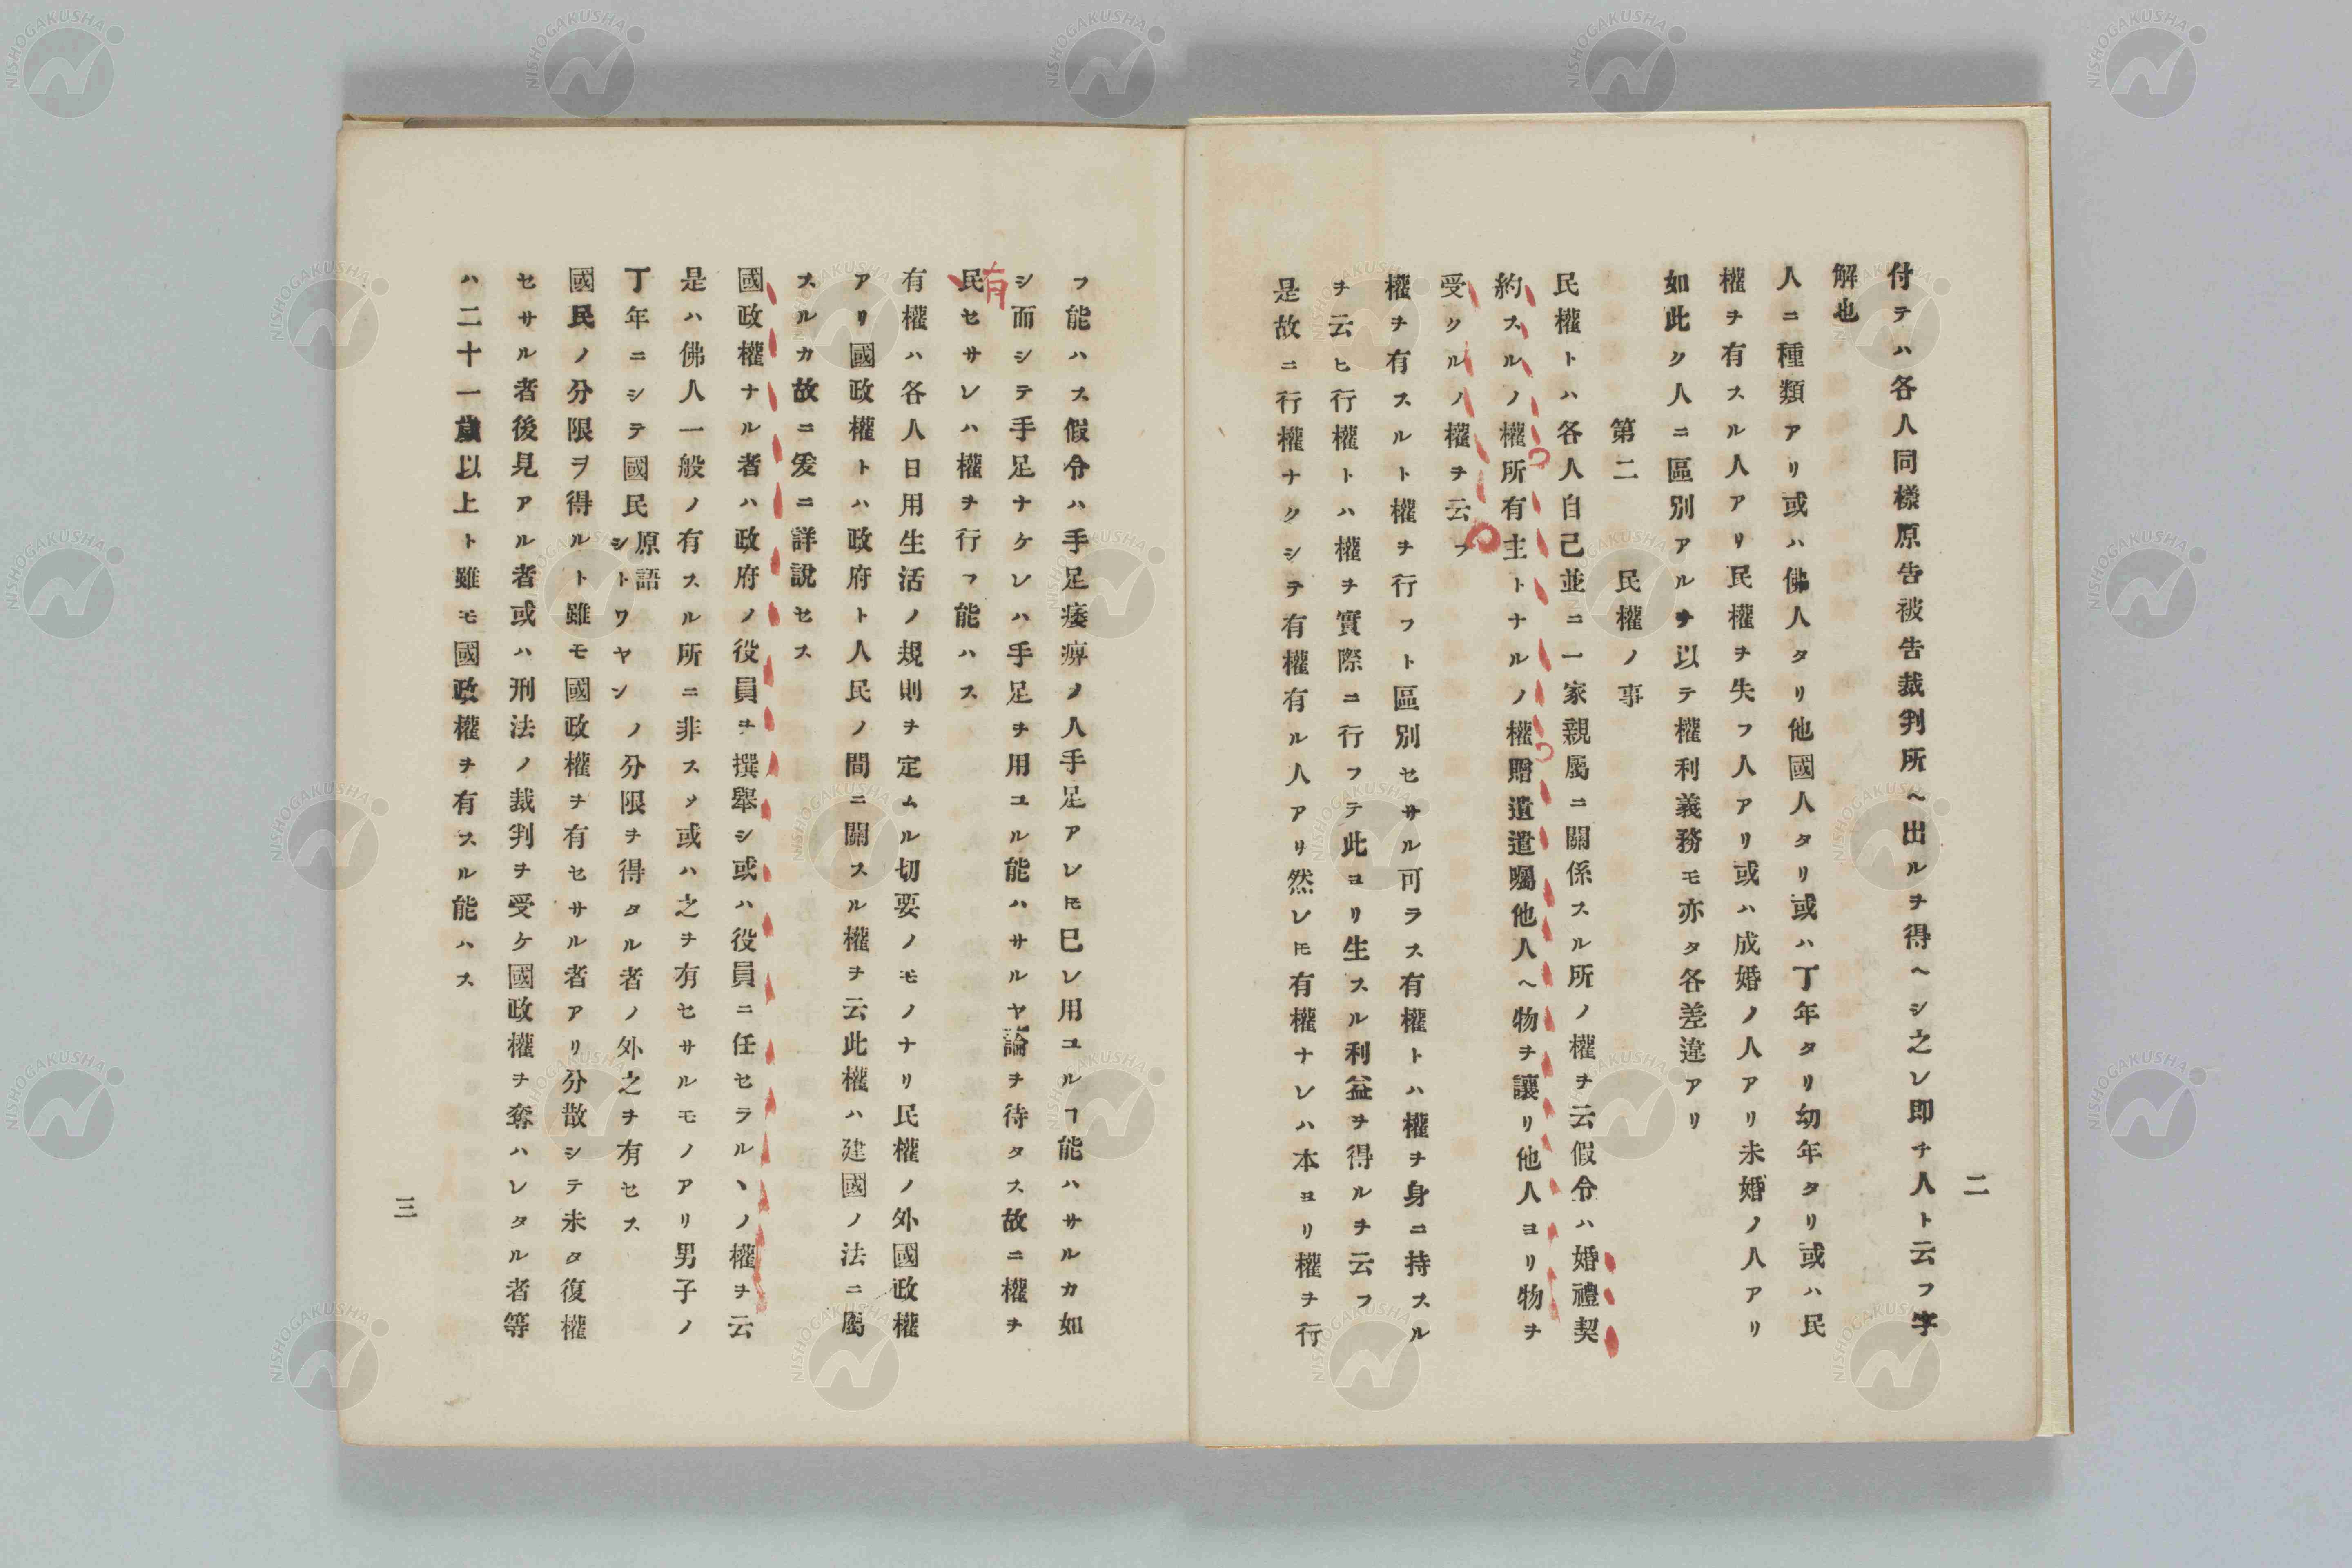 二
付テハ各人同樣原告被告裁判所ヘ出ルヲ得ヘシ之レ即チ人ト云フ字
解也
人ニ種類アリ或ハ佛人タリ他國人タリ或ハ丁年タリ幼年タリ或ハ民
權ヲ有スル人アリ民權ヲ失フ人アリ或ハ成婚ノ人アリ未婚ノ人アリ
如此ク人ニ區別アルヲ以テ權利義務モ亦タ各差違アリ
第二　民權ノ事
民權トハ各人自己並ニ一家親屬ニ關係スル所ノ權ヲ云假令ハ婚禮契
約スルノ權所有主トナルノ權贈遺遣囑他人ヘ物ヲ讓リ他人ヨリ物ヲ
受クルノ權ヲ云フ
權ヲ有スルト權ヲ行フト區別セサル可ラス有權トハ權ヲ身ニ持スル
ヲ云ヒ行權トハ權ヲ實際ニ行フテ此ヨリ生スル利益ヲ得ルヲ云フ
是故ニ行權ナクシテ有權有ル人アリ然レ𪜈有權ナレハ本ヨリ權ヲ行
フ能ハス假令ハ手足痿痺ノ人手足アレ𪜈已レ用ユルヿ能ハサルカ如
シ而シテ手足ナケレハ手足ヲ用ユル能ハサルヤ論ヲ待タス故ニ權ヲ
有
民セサレハ權ヲ行フ能ハス
有權ハ各人日用生活ノ規則ヲ定ムル切要ノモノナリ民權ノ外國政權
アリ國政權トハ政府ト人民ノ間ニ關スル權ヲ云此權ハ建國ノ法ニ屬
スルカ故ニ爰ニ詳說セス
國政權ナル者ハ政府ノ役員ヲ撰擧シ或ハ役員ニ任セラルヽノ權ヲ云
是ハ佛人一般ノ有スル所ニ非スメ或ハ之ヲ有セサルモノアリ男子ノ
丁年ニシテ國民原語シトワヤンノ分限ヲ得タル者ノ外之ヲ有セス
國民ノ分限ヲ得ルト雖モ國政權ヲ有セサル者アリ分散シテ未タ復權
セサル者後見アル者或ハ刑法ノ裁判ヲ受ケ國政權ヲ奪ハレタル者等
ハ二十一歲以上ト雖モ國政權ヲ有スル能ハス
三
NISHOGAKUSHA